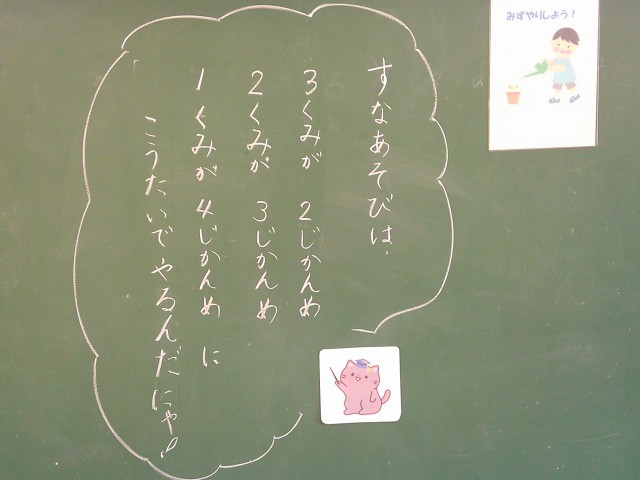 みずやりしよう！
すなあそびは、
3くみが 2じかんめ
2くみが 3じかんめ
1くみが 4じかんめ に
こうたいでやるんだにゃ!